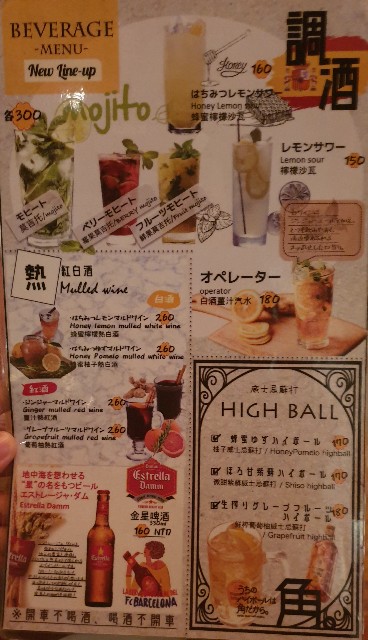 BEVERAGE
-MENU-
New Line-up
調酒
Honey
160
はちみつレモンサワー
Honey Lemon sour
蜂蜜檸檬沙瓦
各300
mojito
レモンサワー
Lemon sour
檸檬沙瓦
150
モヒート
莫吉托/mojito
ベリーモヒート
フルーツモヒート
鮮果莫吉托/Fruit mojito
オペレーター
operator
白酒薑汁汽水 180
熱
紅白酒
Mulled wine
白酒
はちみつレモンマルドワイン 260
Honey lemon mulled white wine
蜂蜜檸檬熱白酒
はちみつゆずマルドワイン 260
Honey Pomelo mulled white wine
蜜柚子熱白酒
紅酒
ジンジャーマルドワイン 260
Ginger mulled red wine
薑汁熱紅酒
グレープフルーツマルドワイン 260
Grapefruit mulled red wine
葡萄柚熱紅酒
地中海を想わせる
"星"の名をもつビール
エストレージャ・ダム
Estrella Damm
Estrella
Damm
金星啤酒
330ml
160 NTD
FC BARCELONA
威士忌蘇打
HIGH BALL
蜂蜜ゆずハイボール 170
柚子威士忌蘇打 / HoneyPomelo highball
ほろ甘紫蘇ハイボール 170
微甜紫蘇威士忌蘇打 / Shiso highball
生搾りグレープフルーツ
ハイボール 180
鮮榨葡萄柚威士忌蘇打
/ Grapefruit highball
うちの
ハイボールは
角だから。
角
※開車不喝酒、喝酒不開車